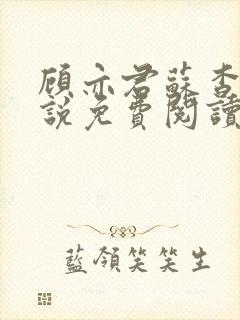 顾亦君蘇杏
說免費閱讀
藍領笑笑生